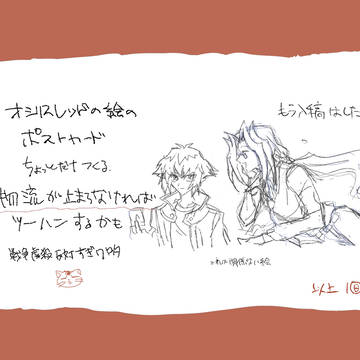 オシリスレッドの絵の
ポストカード
ちょっとだけつくる
物流が止まらなければ
ツーハンするかも
もう入稿はした
※れた関係ない絵
以上 1回